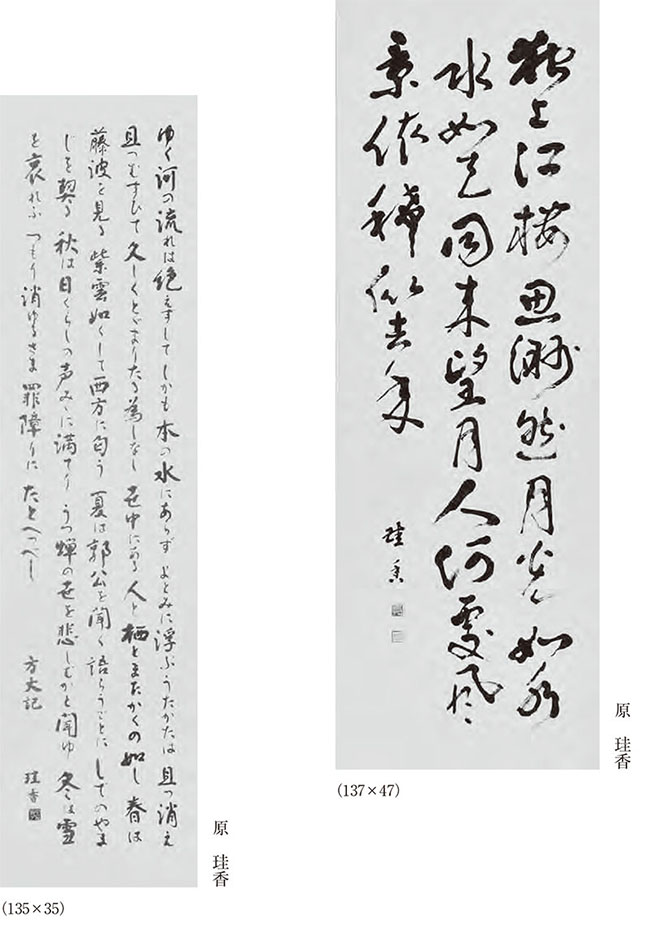 獨上江楼思渺然月光如水
水如天同来望月人何處風
景依稀似去年
珪香
原 珪香
(137×47)
ゆく河の流れは絶えずして しかも本の水にあらず よどみに浮ぶうたかたは 且つ消え
且つむすひて久しくとゞまりたる為しなし 世中にある人と栖とまたかくの如し 春は
藤波を見る 紫雲如くして西方に匂う 夏は郭公を聞く 語らうごとに しでのやま
じを契る 秋は日くらしの声みゝに満てり うつ蝉の世を悲しむかと聞ゆ 冬は雪
を哀れぶ つもり消ゆるさま 罪障りに たとへつべし
方丈記
珪香
原 珪香
(135×35)